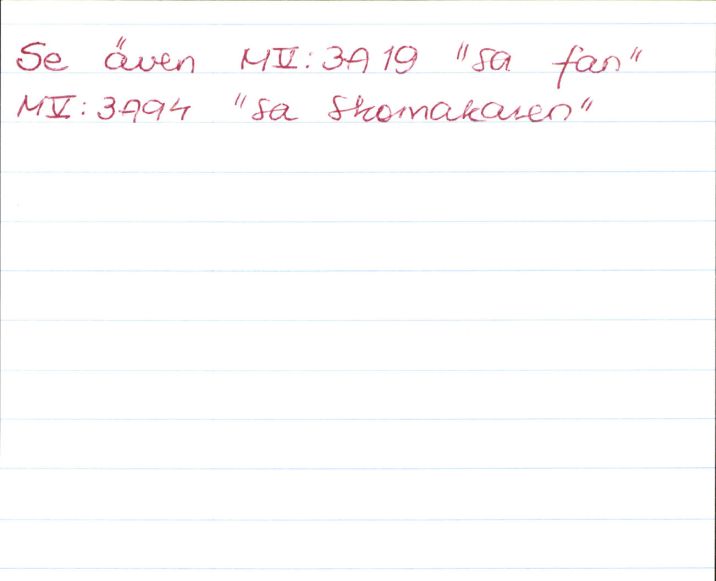 Se även MV:3A19 "sa fan"
MV:3A94 "sa Skomakaren"